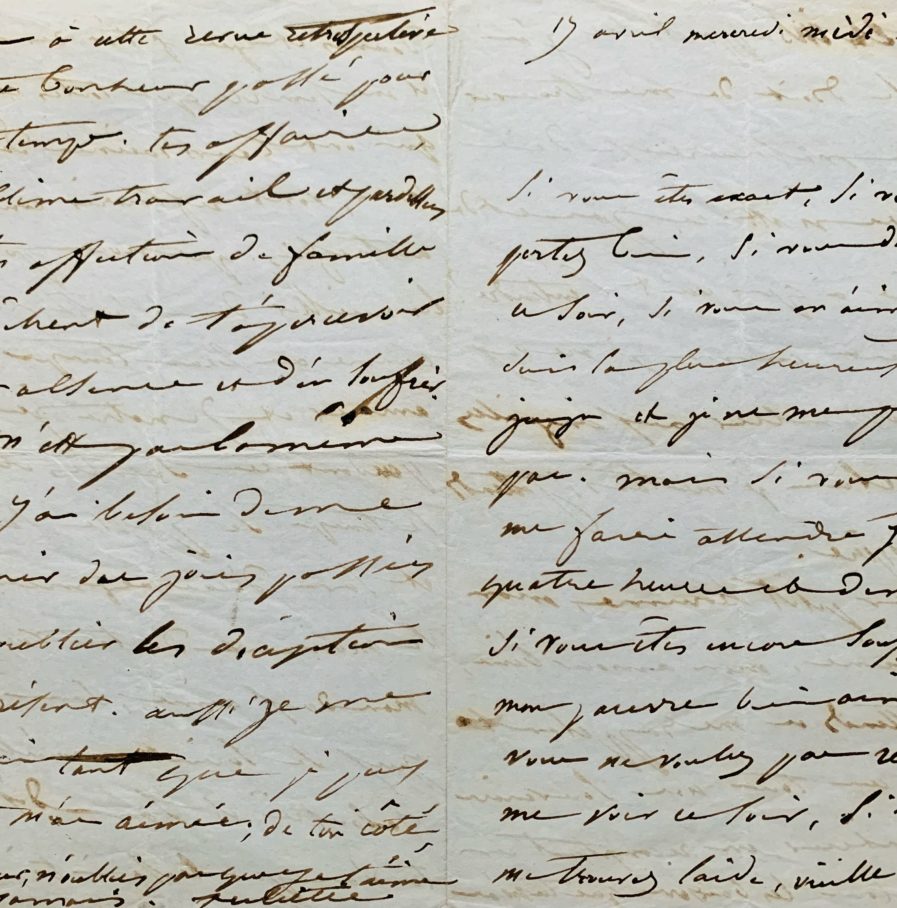 à cette revue retrospective
bonheur passé pour
temps. tes affaires,
travail et pardessus
affection de famille
de t'apercevoir
absence et d'en souffrir
n'est pas la même
J'ai besoin de me
des joies passées
oublier les déception
présent. aussi je me
tant que je puis
m'as aimée, de ton côté
n'oublies pas que je t'aime
jamais. Juliette
17 avril mercredi midi
Si vous êtes exact, si
portez bien, si vous
ce soir, si vous m'aim
suis la plus heureus
juju et je ne me
pas. mais si vous
me faire attendre
quatre heures et dem
si vous êtes encore souf
mon pauvre bien aim
vous ne voulez pas re
me voir ce soir, si
me trouvez laide, vieille